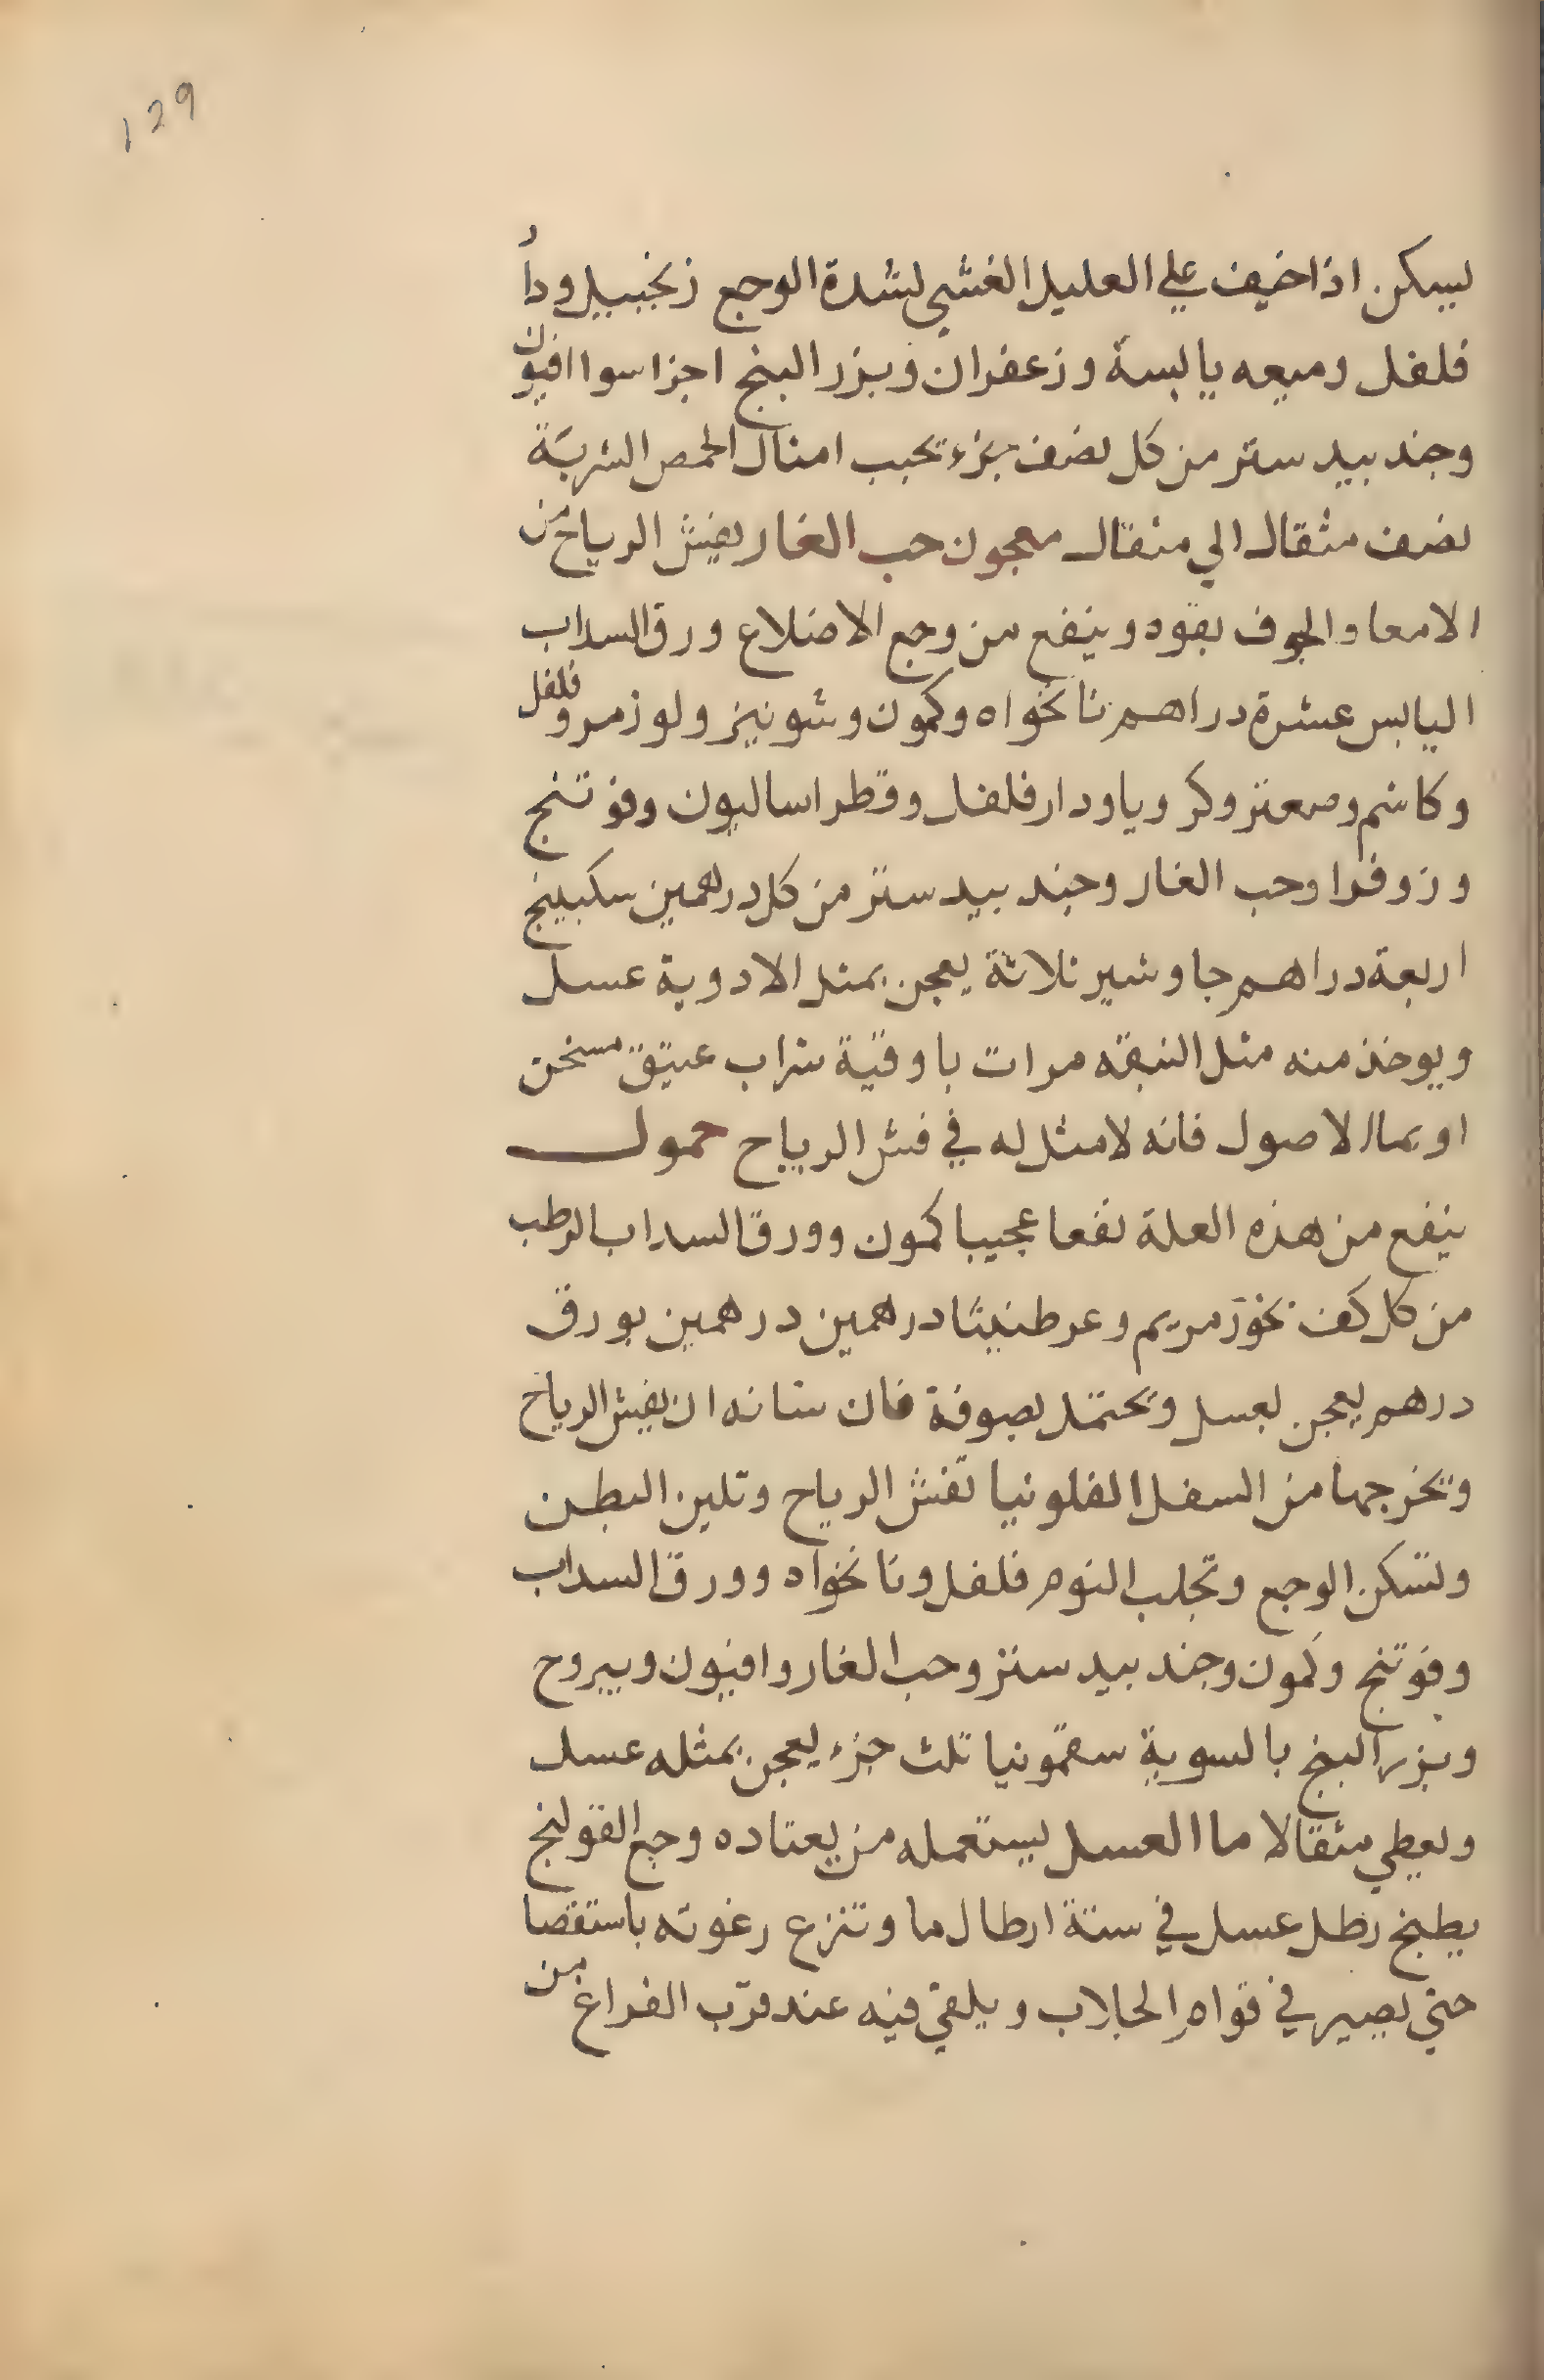 129
ليسكن اذا خيف علي العليل الغشي لشدة الوجع زنجبيل ودار
فلفل وميعه يابسة وزعفران وبزر البنج اجزا سوا افيون
وجند بيد ستر من كل نصف جزء تحبب امثال الحمص الشربة
نصف مثقال الي مثقال معجون حب الغار يفش الرياح من
الامعا والجوف بقوه وينفع من وجع الاضلاع ورق السداب
اليابس عشرة دراهم نانخواه وكمون وشونيز ولوز مر وفلفل
وكاشم وصعتر وكرويا ودار فلفل وقطراساليون وفوتنج
وزوفرا وحب الغار وجند بيد ستر من كل درهمين سكبينج
اربعة دراهم جاوشير ثلاثة يعجن بمثل الادوية عسل
ويوخذ منه مثل النبقه مرات باوقية شراب عتيق مسخن
او بماء الاصول فانه لا مثل له في فش الرياح حمول
ينفع من هذه العلة نفعا عجيبا كمون وورق السداب الرطب
من كل كف بخور مريم وعرطنيثا درهمين درهمين بورق
درهم يعجن بعسل وتحتمل بصوفة فان شانه ان يفش الرياح
وتخرجها من السفل الفلونيا تفش الرياح وتلين البطن
وتسكن الوجع وتجلب النوم فلفل ونانخواه وورق السداب
وفوتنج وكمون وجند بيد ستر وحب الغار وافيون ويبروح
وبزر البنج بالسوية سقمونيا ثلث جزء يعجن بمثله عسل
ويعطي مثقالا ما العسل يستعمله من يعتاده وجع القولنج
يطبخ رطل عسل في ستة ارطال ما وتنزع رغوته باستقصا
حتي يصير في قوام الجلاب ويلقي فيه عند قرب الفراغ من